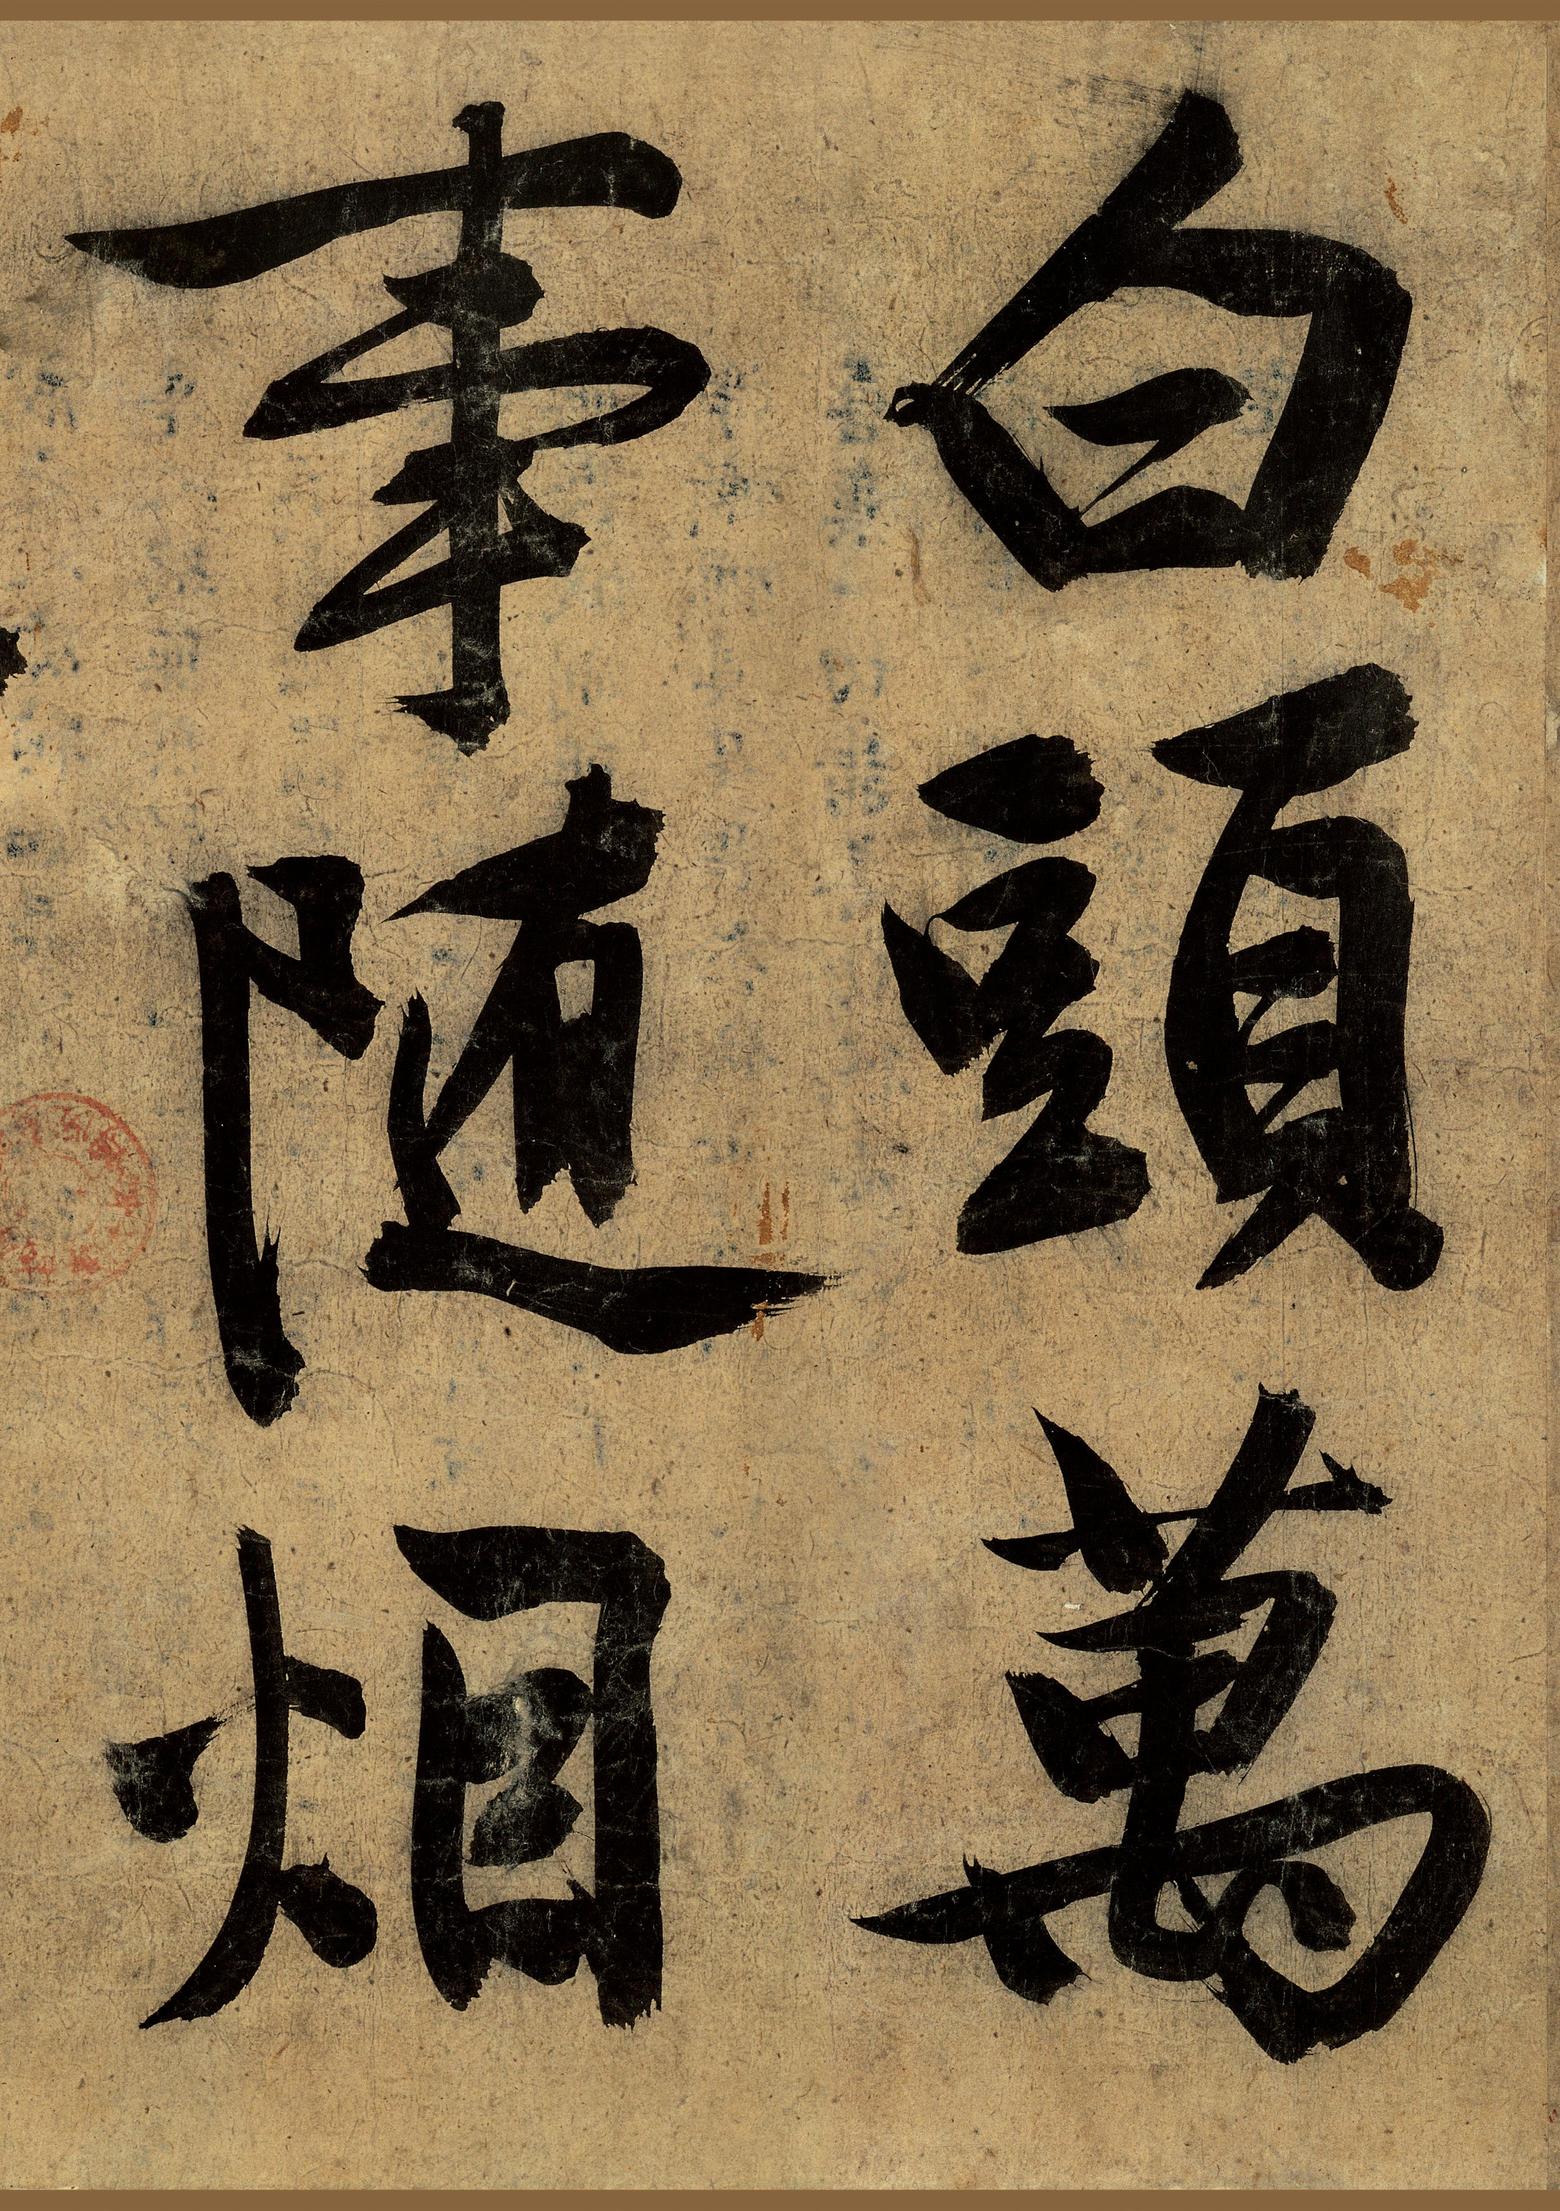 白頭萬
事随烟